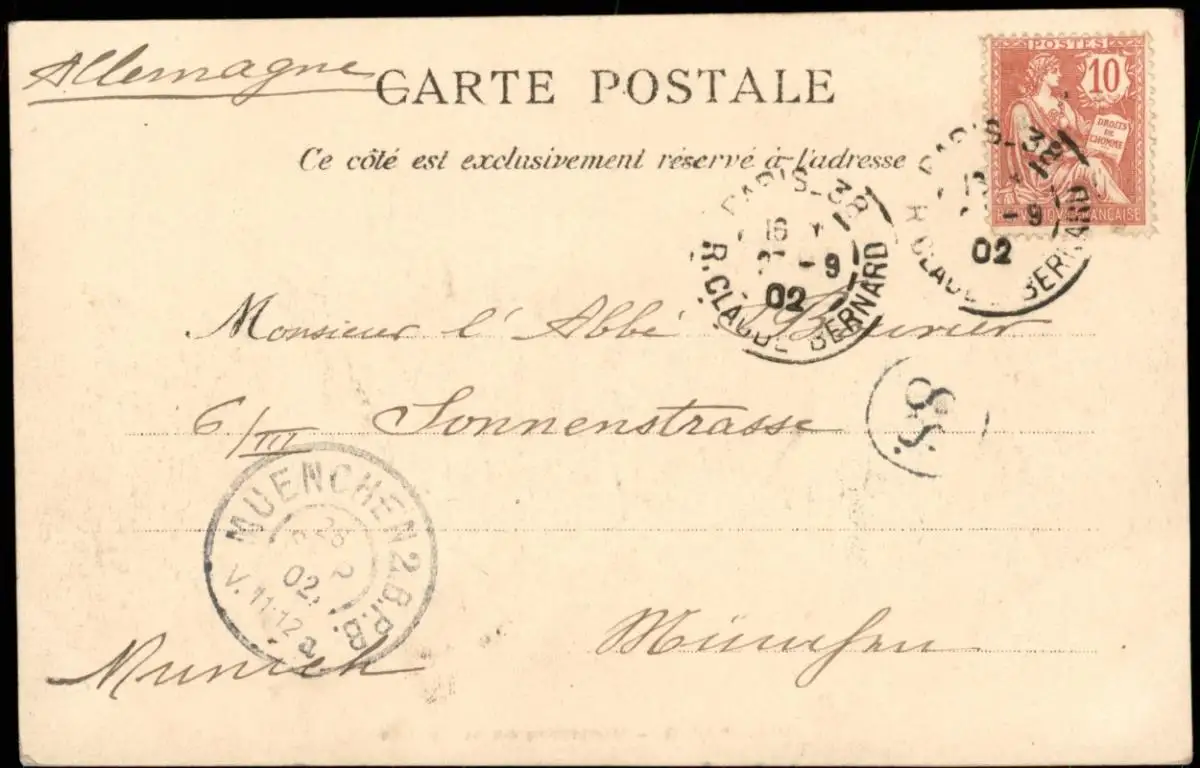 Allemagne
CARTE POSTALE
Ce côté est exclusivement réservé à l'adresse
POSTES
10
DROITS DE L'HOMME
REPUBLIQUE FRANÇAISE
PARIS-38
18
-9
02
R. CLAUDE BERNARD
PARIS-38
16
-9
02
R. CLAUDE BERNARD
Monsieur l'Abbé
6/III Sonnenstrasse
88.
MUENCHEN 2.B.P.B.
28
02.
V. 11-12 a
München
Munich